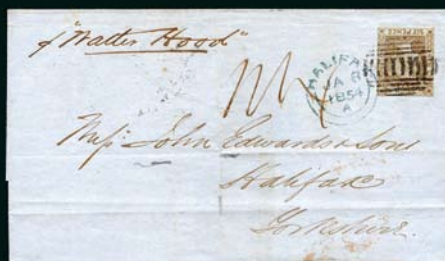 ℘ "Walter Hood"
HALIFAX
JA 8
1854
A
Mess: John Edwards & Sons
Halifax
Yorkshire.